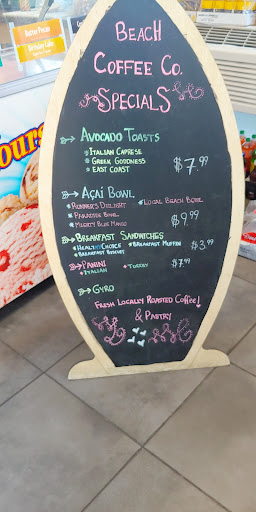 Butter Pecan
Birthday Cake
ours
BEACH
COFFEE CO.
SPECIALS
AVOCADO TOASTS
ITALIAN CAPRESE
GREEN GOODNESS
EAST COAST
$7.99
AÇAÍ BOWL
RUNNER'S DELIGHT LOCAL BEACH BOWL
PARADISE BOWL
MIGHTY BLUE MANGO
$9.99
BREAKFAST SANDWICHES
HEALTHCHOICE BREAKFAST MUFFIN
BREAKFAST BISCUIT
$3.99
PANINI
ITALIAN TURKEY
$7.99
GYRO
FRESH LOCALLY ROASTED COFFEE!
& PASTRY